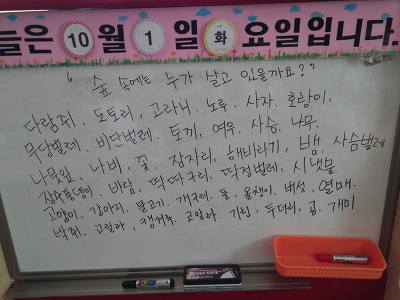 들은 10월 1일 화요일입니다.
"숲 속에는 누가 살고 있을까요?"
다람쥐, 도토리, 고라니, 노루, 사자, 호랑이,
무당벌레, 비단벌레, 토끼, 여우, 사슴, 나무,
나뭇잎, 나비, 꽃, 잠자리, 해바라기, 뱀, 사슴벌레
장수풍뎅이, 바람, 딱따구리, 딱정벌레, 시냇물
고양이, 강아지, 물고기, 개구리, 돌, 올챙이, 버섯, 열매,
박쥐, 고릴라, 캥거루, 코알라, 기린, 두더지, 곰, 개미